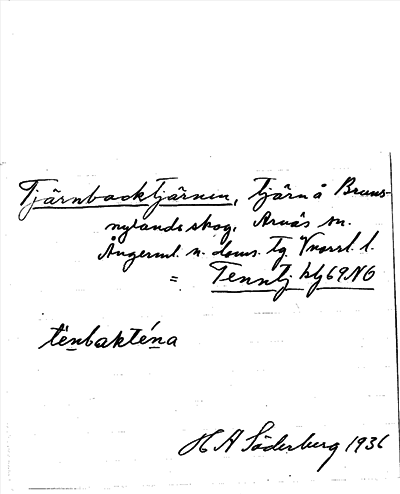 Tjärnbacktjärnen, tjärn å Bruns-
nylands skog, Arnäs sn.
Ångerml. n. doms. tg. Vnorrl. l.
= Tenntj. kbl 69 NO
tënbakténa
H A Söderberg 1936